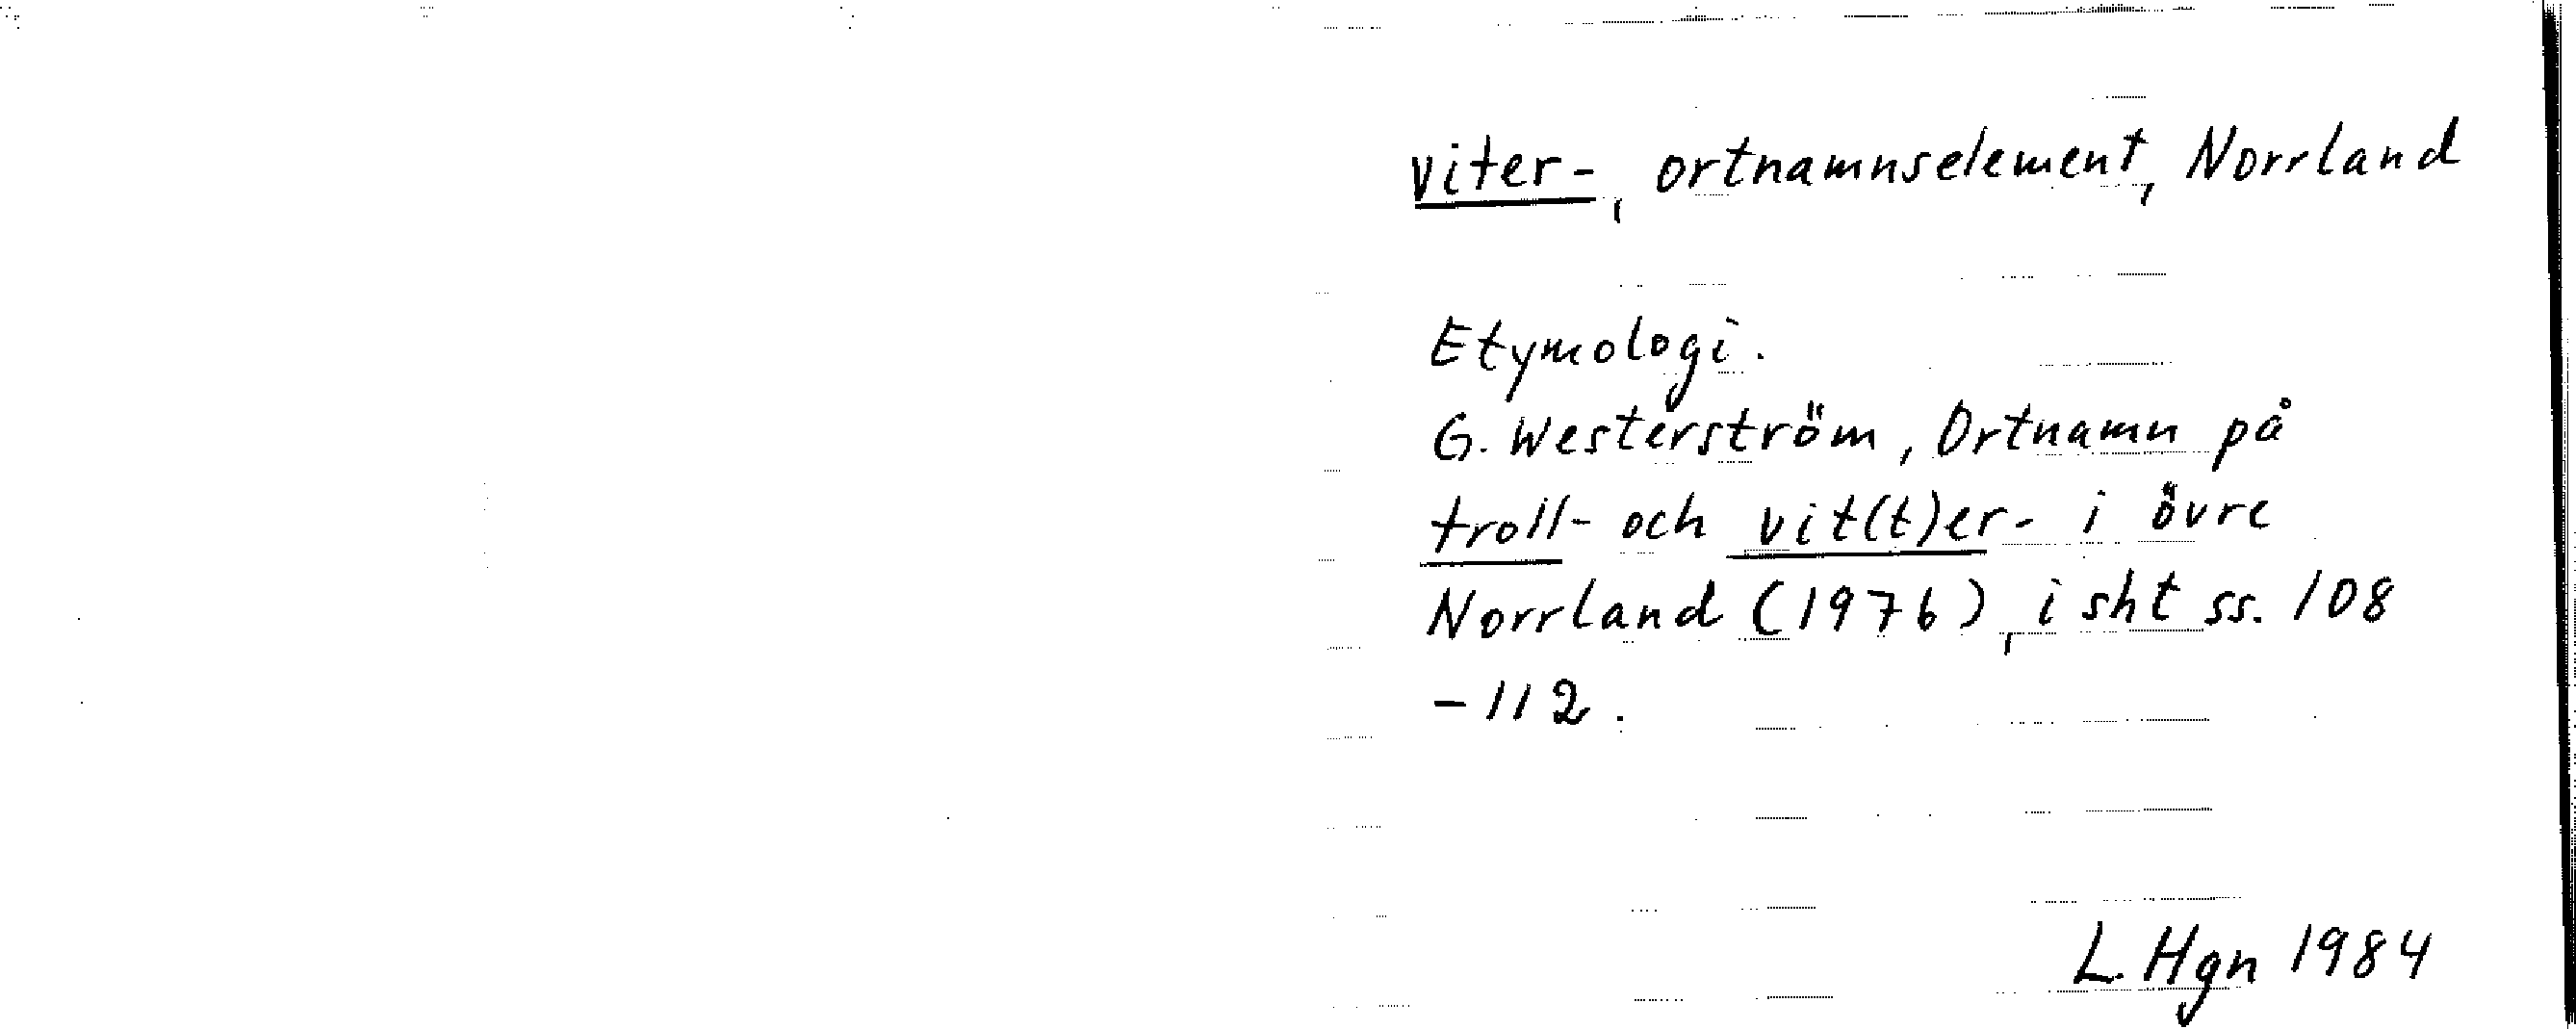 viter-, ortnamnselement, Norrland
Etymologi.
G. Westerström, Ortnamn på
troll- och vit(t)er- i övre
Norrland (1976), i sht ss. 108
-112.
L. Hgn 1984